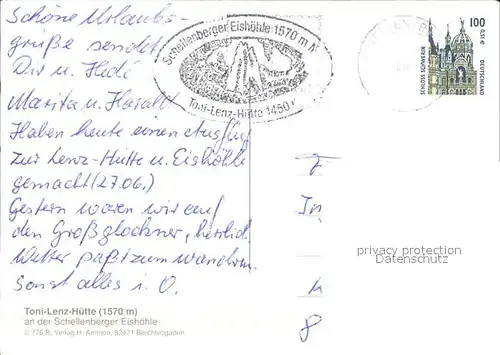 Schöne Urlaubs-
grüße sendet
Dir u. Hedi
Marita u. Harald
Haben heute einen Ausflug
zur Lenz-Hütte u. Eishöhle
gemacht (27.06.)
Gestern waren wir auf
den Großglockner, herrlich.
Wetter paßt zum wandern.
Sonst alles i. O.
Schellenberger Eishöhle 1570 m
Toni-Lenz-Hütte 1450
100
0,51€
DEUTSCHLAND
SCHLOSS SCHWERIN
8
privacy protection
Datenschutz
Toni-Lenz-Hütte (1570 m)
an der Schellenberger Eishöhle
© 776 B, Verlag H. Ammon, 83471 Berchtesgaden